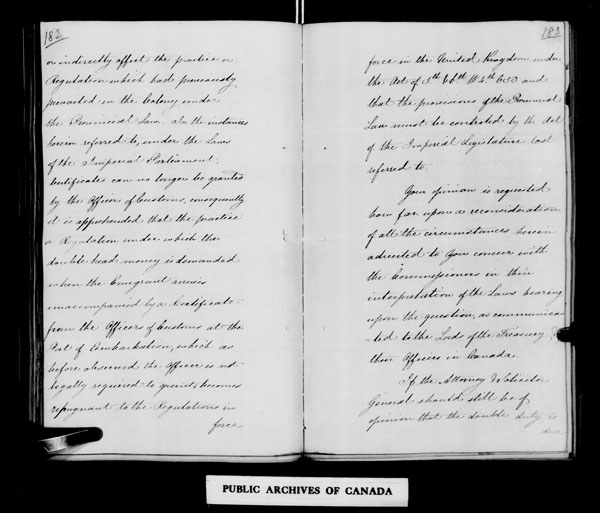 182
or indirectly affect the practice or
Regulation which had previously
prevailed in the Colony under
the Provincial Law. In the instances
herein referred to, under the Laws
of the Imperial Parliament,
Certificates can no longer be granted
by the Officers of Customs, consequently
it is apprehended that the practice
or Regulation under which the
double head money is demanded
when the Emigrant arrives
unaccompanied by a Certificate
from the Officers of Customs at the
Port of Embarkation, which as
before observed the Officer is not
legally required to grant, becomes
repugnant to the Regulations in
force
183
force in the United Kingdom under
the Act of 5th & 6th W 4th C 53 and
that the provisions of the Provincial
Law must be controlled by the Act
of the Imperial Legislature last
referred to.
Your opinion is requested
how far upon a reconsideration
of all the circumstances herein
adverted to You concur with
the Commissioners in their
interpretation of the Laws bearing
upon the question, as communica-
-ted to the Lords of the Treasury &
their Officers in Canada.
If the Attorney & Solicitor
General should still be of
opinion that the double duty is
due
PUBLIC ARCHIVES OF CANADA